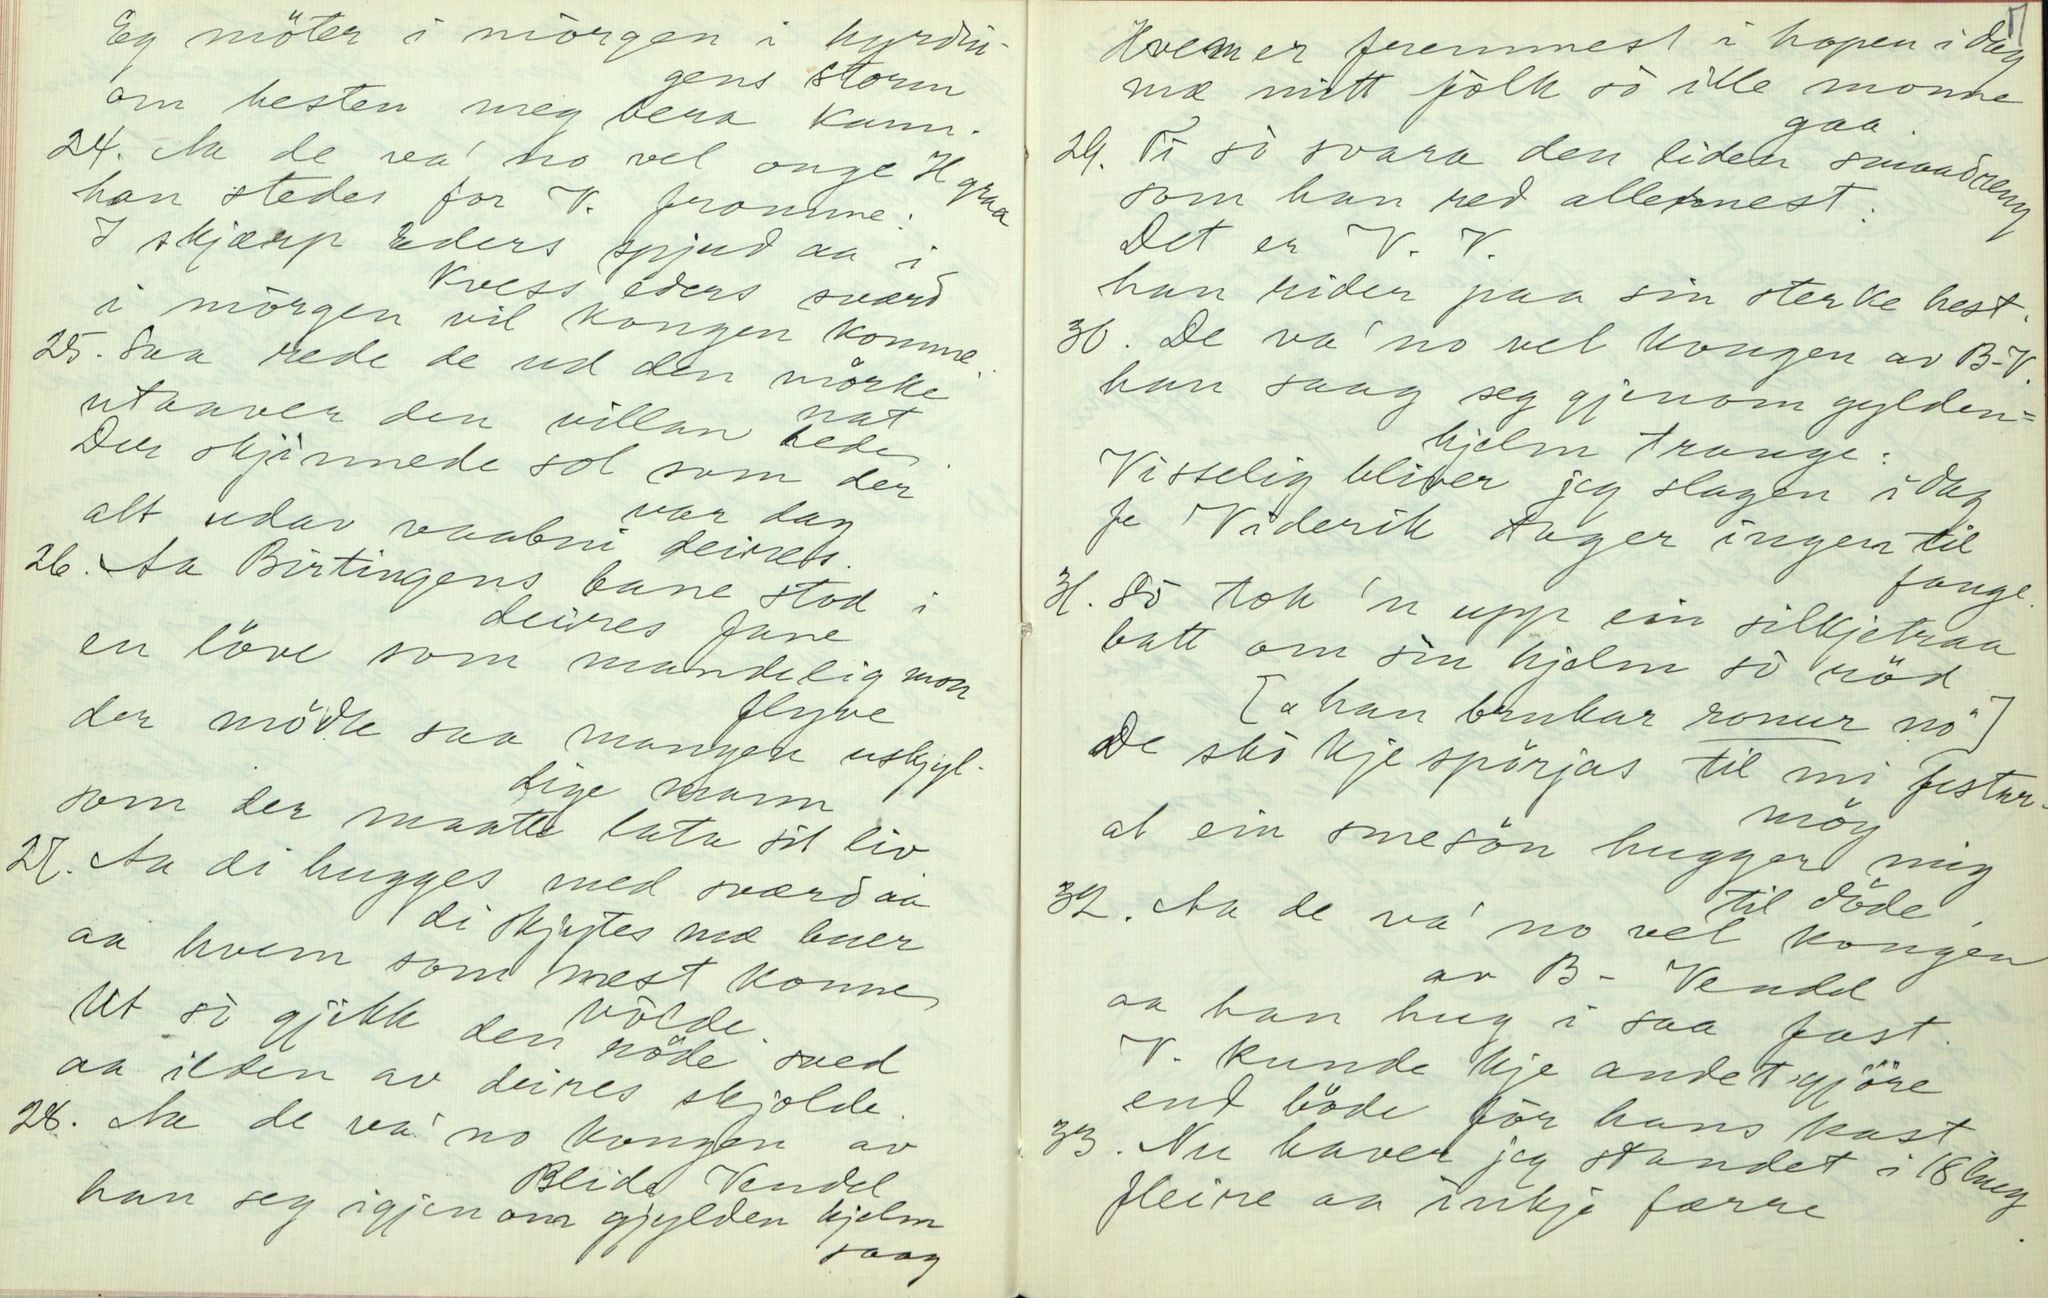 Eg möter i mörgen i hyrdin-
gens storm
om hesten meg bera kann.
24. Aa de va' no vel onge H graa
han stedes for V. fromme:
I skjærp eders spjud aa i
kvess eders sværd
i mörgen vil kongen komme.
25. Saa rede de ud den mörke
nat
utaaver den villan hede.
Der skjinnede sol som der
var dag
alt udav vaabni deires.
26. Aa Birtingens bane stod i
deires fane
en löve som mandelig mon
flyve
der mödte saa mangen uskjyl-
dige mann
som der maatte lata sit liv
27. Aa di hugges med sværd aa
di skjytes mæ buer
aa hvem som mest konne
völde.
Ut sò gjikk den röde sved
aa ilden av deires skjolde.
28. Aa de va' no kongen av
Bleide Vendel
han seg igjenom gjylden hjelm
saag
17
Hvem er fremmest i hopen idag
mæ mitt fölk sò ille monne
gaa.
29. Ti sò svara den liden smaadreng
som han red allernest:
Det er V. V.
han rider paa sin sterke hest.
30. De va' no vel kongen av B-V.
han saag seg gjenom gylden=
hjelm trange:
Visselig bliver jeg slagen idag
fe Viderik tager ingen til
fange.
31. Sò tok 'n upp ein silkjetraa
batt om sin hjelm sò röd
["han brukar ronur no"]
De skò kje spörjas til mi festar-
möy
at ein smesön hugger mig
til döde.
32. Aa de va' no vel kongen
av B- Vendel
aa han hug i saa fast.
V. kunde kje andet gjöre
end böde för hans kast
33. Nu haver jeg standet i 18 hug
fleire aa inkje færre.